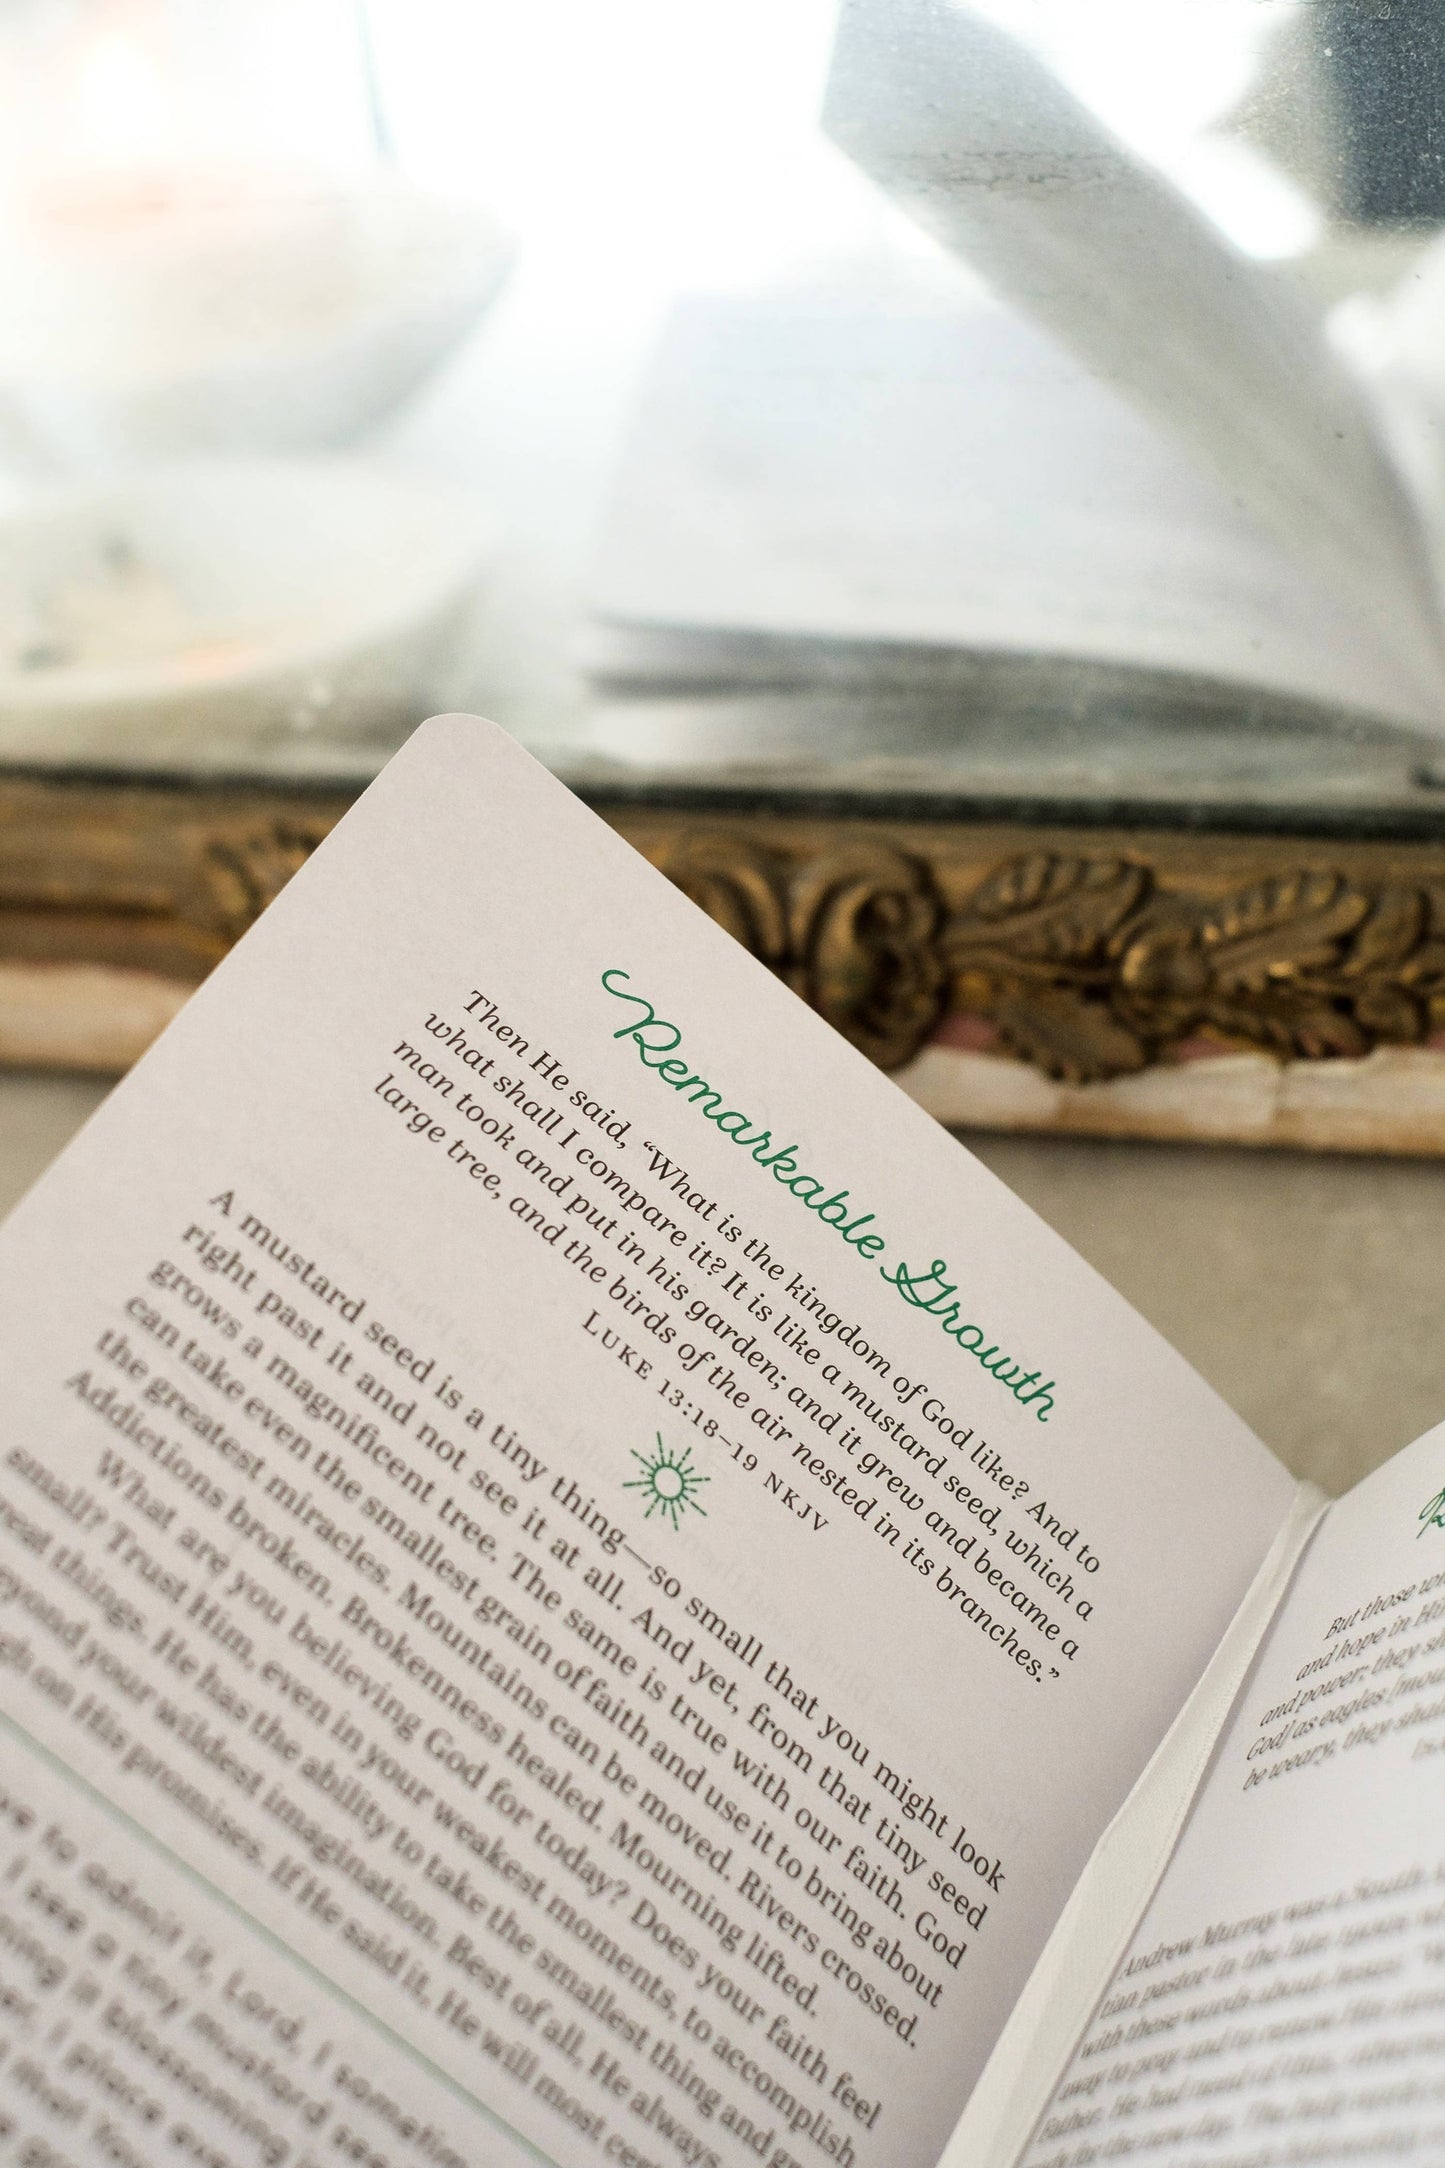 Remarkable Growth
Then He said, “What is the kingdom of God like? And to
what shall I compare it? It is like a mustard seed, which a
man took and put in his garden; and it grew and became a
large tree, and the birds of the air nested in its branches.”
LUKE 13:18–19 NKJV
A mustard seed is a tiny thing—so small that you might look
right past it and not see it at all. And yet, from that tiny seed
grows a magnificent tree. The same is true with our faith. God
can take even the smallest grain of faith and use it to bring about
the greatest miracles. Mountains can be moved. Rivers crossed.
Addictions broken. Brokenness healed. Mourning lifted.
What are you believing God for today? Does your faith feel
small? Trust Him, even in your weakest moments, to accomplish
great things. He has the ability to take the smallest thing and
beyond your wildest imagination. Best of all, He always
on His promises. If He said it, He will most
to admit it, Lord, I
I see a tiny mustard
it blossoming
I place
But those
and hope in
and power; they
God] as eagles
be weary, they shall
Andrew Murray was a South
tian pastor in the late
with these words about Jesus:
away to pray and to renew His
Father. He had need of this,
for the new day. The